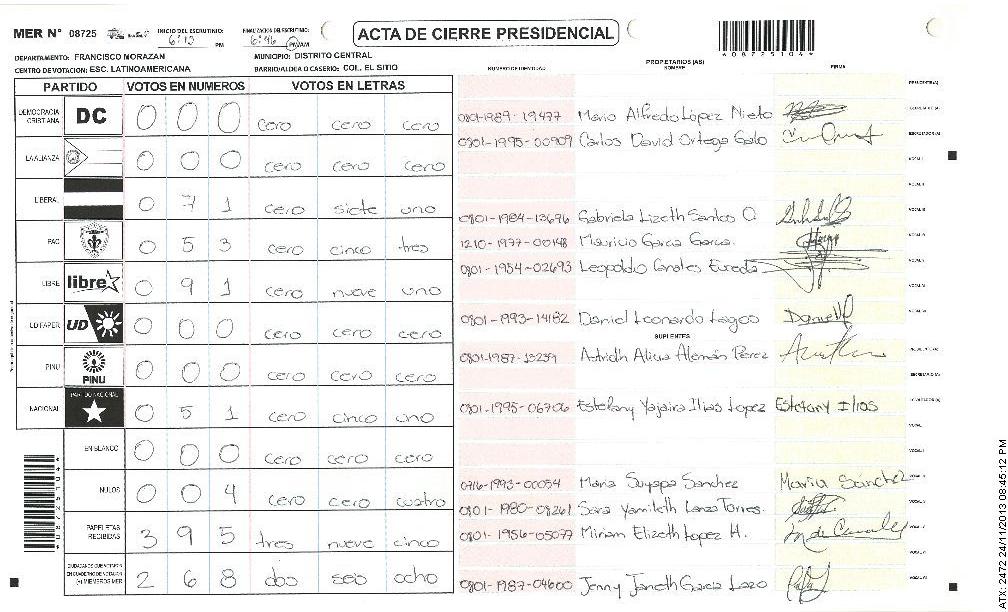 MER Nº 08725 INICIO DEL ESCRUTINIO: 6:13 PM FINALIZACION DEL ESCRUTINIO: 6:46 PM/AM
ACTA DE CIERRE PRESIDENCIAL
408725104
DEPARTAMENTO: FRANCISCO MORAZAN MUNICIPIO: DISTRITO CENTRAL
CENTRO DE VOTACION: ESC. LATINOAMERICANA BARRIO/ALDEA O CASERIO: COL. EL SITIO
PARTIDO VOTOS EN NUMEROS VOTOS EN LETRAS
DEMOCRACIA CRISTIANA DC 0 0 0 cero cero cero
LA ALIANZA 0 0 0 cero cero cero
LIBERAL 0 7 1 cero siete uno
PAC 0 5 3 cero cinco tres
LIBRE libre 0 9 1 cero nueve uno
UD FAPER UD 0 0 0 cero cero cero
PINU PINU 0 0 0 cero cero cero
NACIONAL PARTIDO NACIONAL 0 5 1 cero cinco uno
EN BLANCO 0 0 0 cero cero cero
NULOS 0 0 4 cero cero cuatro
PAPELETAS RECIBIDAS 3 9 5 tres nueve cinco
CIUDADANOS QUE VOTARON EN CUADERNO DE VOTACION (+) MIEMBROS MER 2 6 8 dos seis ocho
NUMERO DE IDENTIDAD PROPIETARIOS (AS) NOMBRE FIRMA
PRESIDENTE(A)
0801-1989-19477 Mario Alfredo López Nieto SECRETARIO(A)
0801-1995-00909 Carlos David Ortega Galo ESCRUTADOR(A)
VOCAL I
VOCAL II
0801-1984-13696 Gabriela Lizeth Santos O. VOCAL III
1210-1977-00148 Mauricio Garcia Garcia.
0801-1954-02693 Leopoldo Canales
0801-1993-14182 Daniel Leonardo Lagos Daniel
SUPLENTES
Astridh Alicia Alemán Pérez
SECRETARIO(A)
0801-1995-06706 Estefany Yajaira Ilias Lopez Estefany Ilias ESCRUTADOR(A)
VOCAL I
0716-1993-00054 Maria Suyapa Sanchez Maria Sánchez
0801-1980-08261 Sara Yamileth Lanza Torres.
0801-1956-05077 Miriam Elizeth Lopez H.
0801-1987-04600 Jenny Janeth Garcia Lazo
ATX-2472 24/11/2013 08:45:12 PM